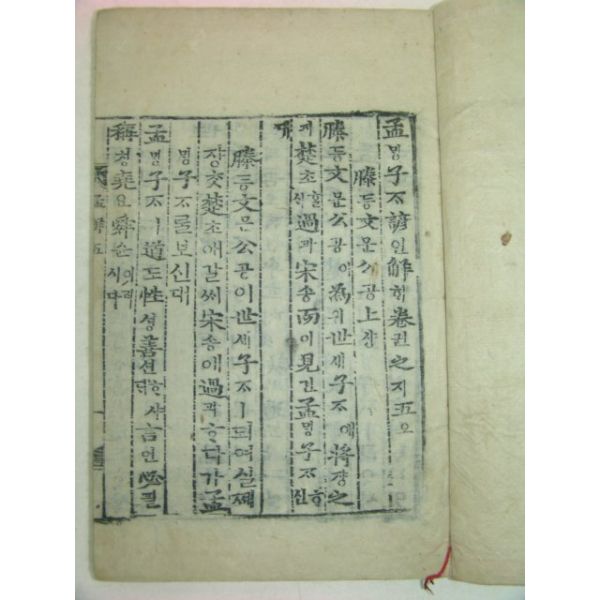 孟ᄆᆡᆼ子ᄌᆞ諺언解ᄒᆡ卷권之지五오
滕등文문公공上샹
滕등文문公공이爲위世셰子ᄌᆞ애將쟝之
지楚초ᄒᆞᆯᄉᆡ過과宋송而이見견孟ᄆᆡᆼ子ᄌᆞᄒᆞ신
대
滕등文문公공이世셰子ᄌᆞㅣ되여실제
쟝ᄎᆞᆺ楚초애갈ᄉᆡ宋송애過과ᄒᆞ다가孟
ᄆᆡᆼ子ᄌᆞᄅᆞᆯ보신대
孟ᄆᆡᆼ子ᄌᆞㅣ道도性셩善션ᄒᆞ샤ᄃᆡ言언必필
稱칭堯요舜슌이러시다